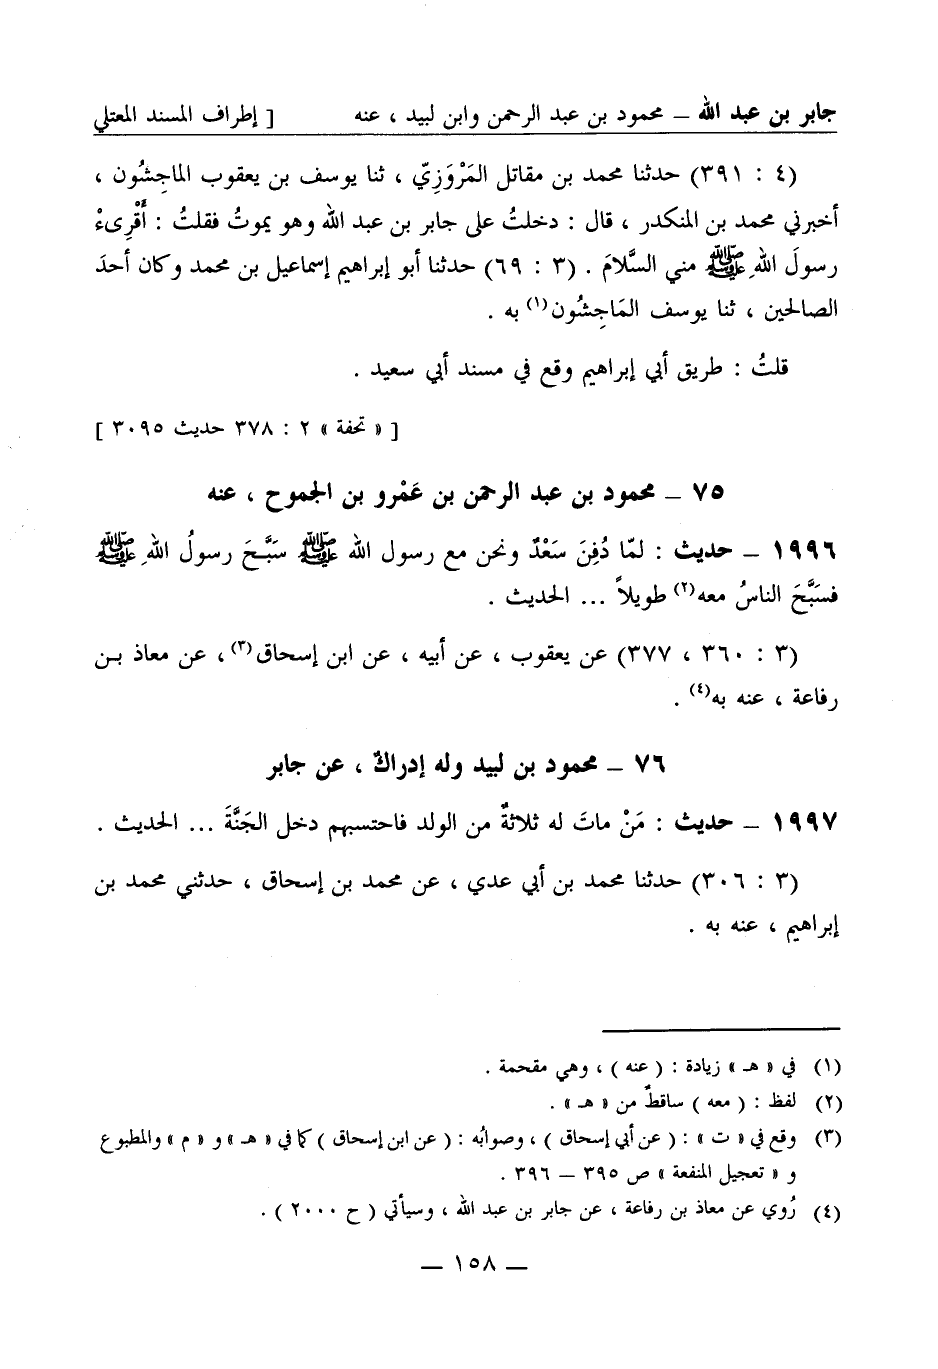 جابر بن عبد الله ــ محمود بن عبد الرحمن وابن لبيد ، عنه [ إطراف المسند المعتلي
(٤ : ٣٩١) حدثنا محمد بن مقاتل المَرْوَزِيّ ، ثنا يوسف بن يعقوب الماجِشُون ،
أخبرني محمد بن المنكدر ، قال : دخلتُ على جابر بن عبد الله وهو يموتُ فقلتُ : أَقْرِىءْ
رسولَ اللهِ ﷺ مني السَّلامَ . (٣ : ٦٩) حدثنا أبو إبراهيم إسماعيل بن محمد وكان أحدَ
الصالحين ، ثنا يوسف المَاجِشُون(١) به .
قلتُ : طريق أبي إبراهيم وقع في مسند أبي سعيد .
[ « تحفة » ٢ : ٣٧٨ حديث ٣٠٩٥ ]
٧٥ ــ محمود بن عبد الرحمن بن عَمْرو بن الجموح ، عنه
١٩٩٦ ــ حديث : لمّا دُفِنَ سَعْدٌ ونحن مع رسول الله ﷺ سَبَّحَ رسولُ اللهِ ﷺ
فسَبَّحَ الناسُ معه(٢) طويلاً ... الحديث .
(٣ : ٣٦٠ ، ٣٧٧) عن يعقوب ، عن أبيه ، عن ابن إسحاق(٣) ، عن معاذ بـن
رفاعة ، عنه به(٤) .
٧٦ ــ محمود بن لبيد وله إدراكٌ ، عن جابر
١٩٩٧ ــ حديث : مَنْ ماتَ له ثلاثةٌ من الولد فاحتسبهم دخل الجَنَّةَ ... الحديث .
(٣ : ٣٠٦) حدثنا محمد بن أبي عدي ، عن محمد بن إسحاق ، حدثني محمد بن
إبراهيم ، عنه به .
(١) في « هـ » زيادة : ( عنه ) ، وهي مقحمة .
(٢) لفظ : ( معه ) ساقطٌ من « هـ » .
(٣) وقع في « ت » : ( عن أبي إسحاق ) ، وصوابُه : ( عن ابن إسحاق ) كما في « هـ » و « م » والمطبوع
و « تعجيل المنفعة » ص ٣٩٥ ــ ٣٩٦ .
(٤) رُوي عن معاذ بن رفاعة ، عن جابر بن عبد الله ، وسيأتي ( ح ٢٠٠٠ ) .
ــ ١٥٨ ــ